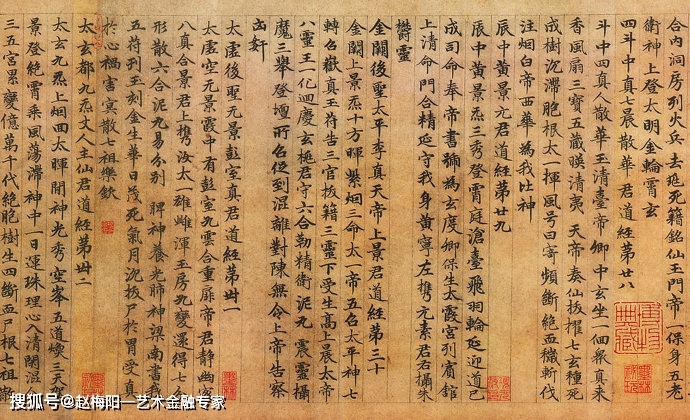 合內洞房列火兵去死籍銘仙玉門帝一保身五老
衛神上登太明金輪霄玄
四斗中真七晨散華君道經第廿八
斗中四真人散華玉清臺帝卿中玄坐一佪眾真來
香風扇三寶五藏暎清夷天帝奏仙拔擢七玄種死
成樹沉滯胞根太一揮風号曰寄頻斷絶血穢斬伐
注烟白帝西華為我比神
辰中黃景元君道經第廿九
辰中黃景炁三秀登霄庭滄臺飛羽輪延迎道已
成司命奉帝書號為玄度卿保生太霞宮列賓舘
上清命門合精延守我身黃寧左攜元素君右攝朱
欝靈
金闕後聖太平李真天帝上景君道經第三十
金闕上景炁十方暉紫烟三命太一帝五名太平神七
轉名歡真王符告三官拔籍三靈下受生高上晨太帝
八靈王一化迴慶玄梃君守六合勒精衛泥丸震靈攝
魔三舉登壇所召促到混離對陳無令上帝告察
凶奸
太虛後聖元景彭室真君道經第卅一
太虛空元景霞中有彭室九雲合重扉帝君静幽
八真合景君上攜汝太一雄雌渾玉房九變還得七
形散六合泥丸易分別脾神養光肺神梁南書我
五符列玉刻金生華日茂死氣月沉拔尸於胃受真
於心禍害冥散七祖樂欽
太玄都九炁丈人主仙君道經第卅二
太玄九炁上烟四太暉開神光秀空峯五道煥三
景登絶霄乘風蕩滯神中一日運珠理心入清閑滋
三五宮累變億萬千代絶胞樹生四斷血尸根七祖散
搜狐号@赵梅阳—艺术金融专家